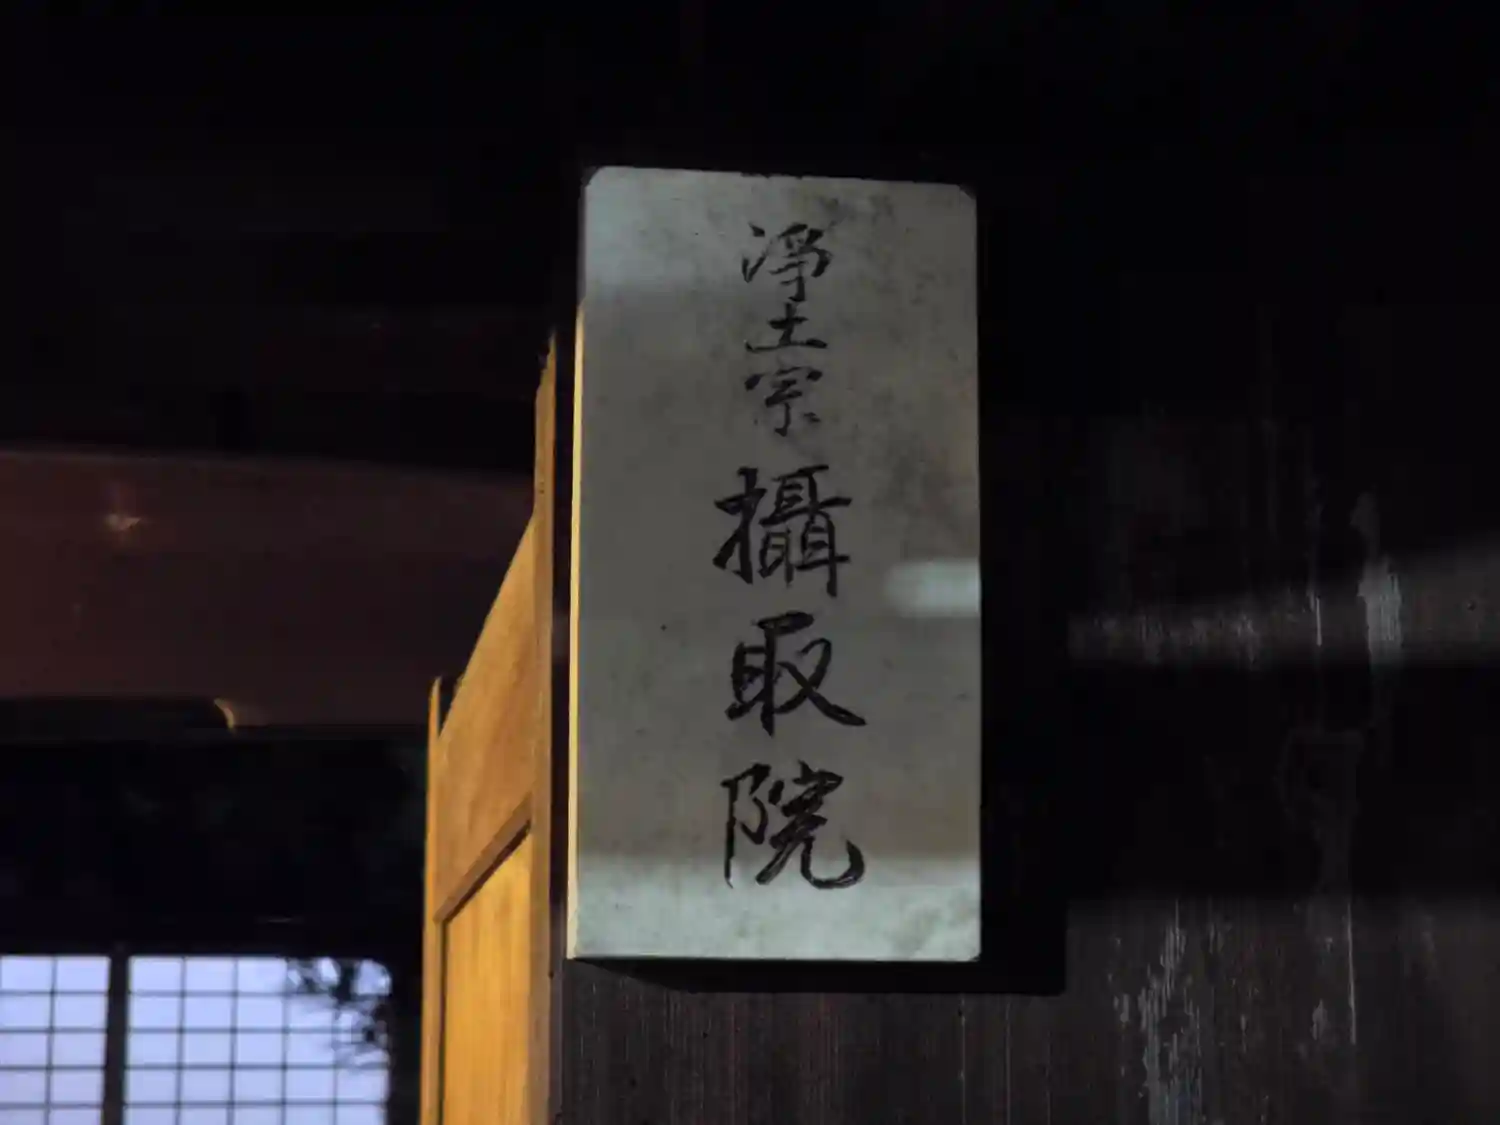 淨土宗 攝取院